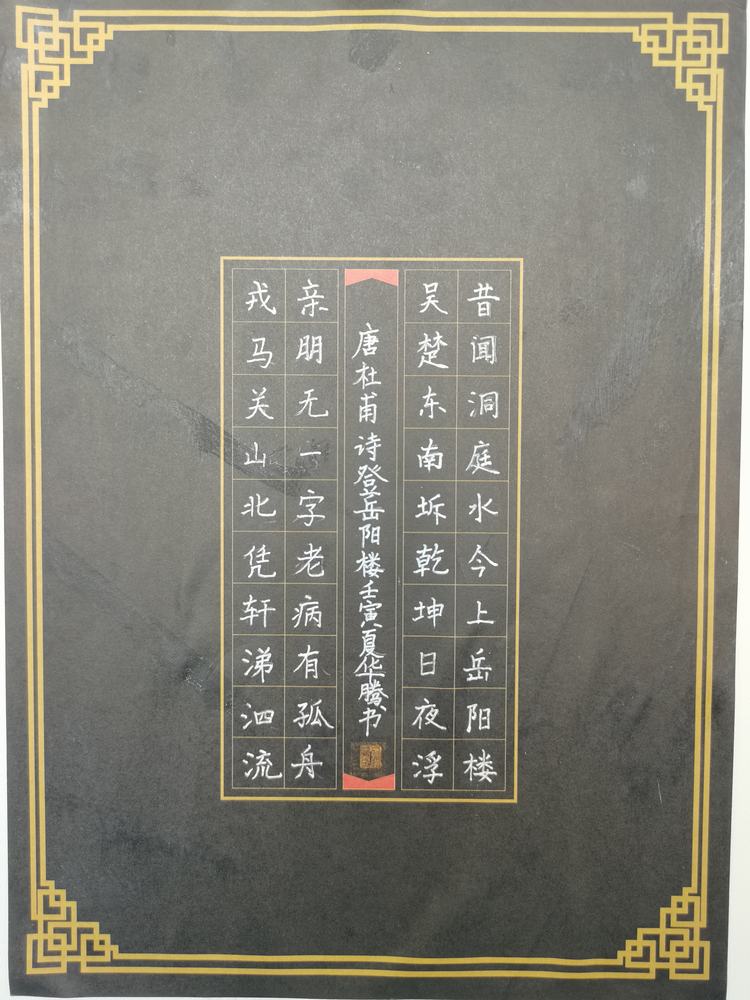 昔闻洞庭水今上岳阳楼
吴楚东南坼乾坤日夜浮
唐杜甫诗登岳阳楼壬寅夏华腾书
亲朋无一字老病有孤舟
戎马关山北凭轩涕泗流